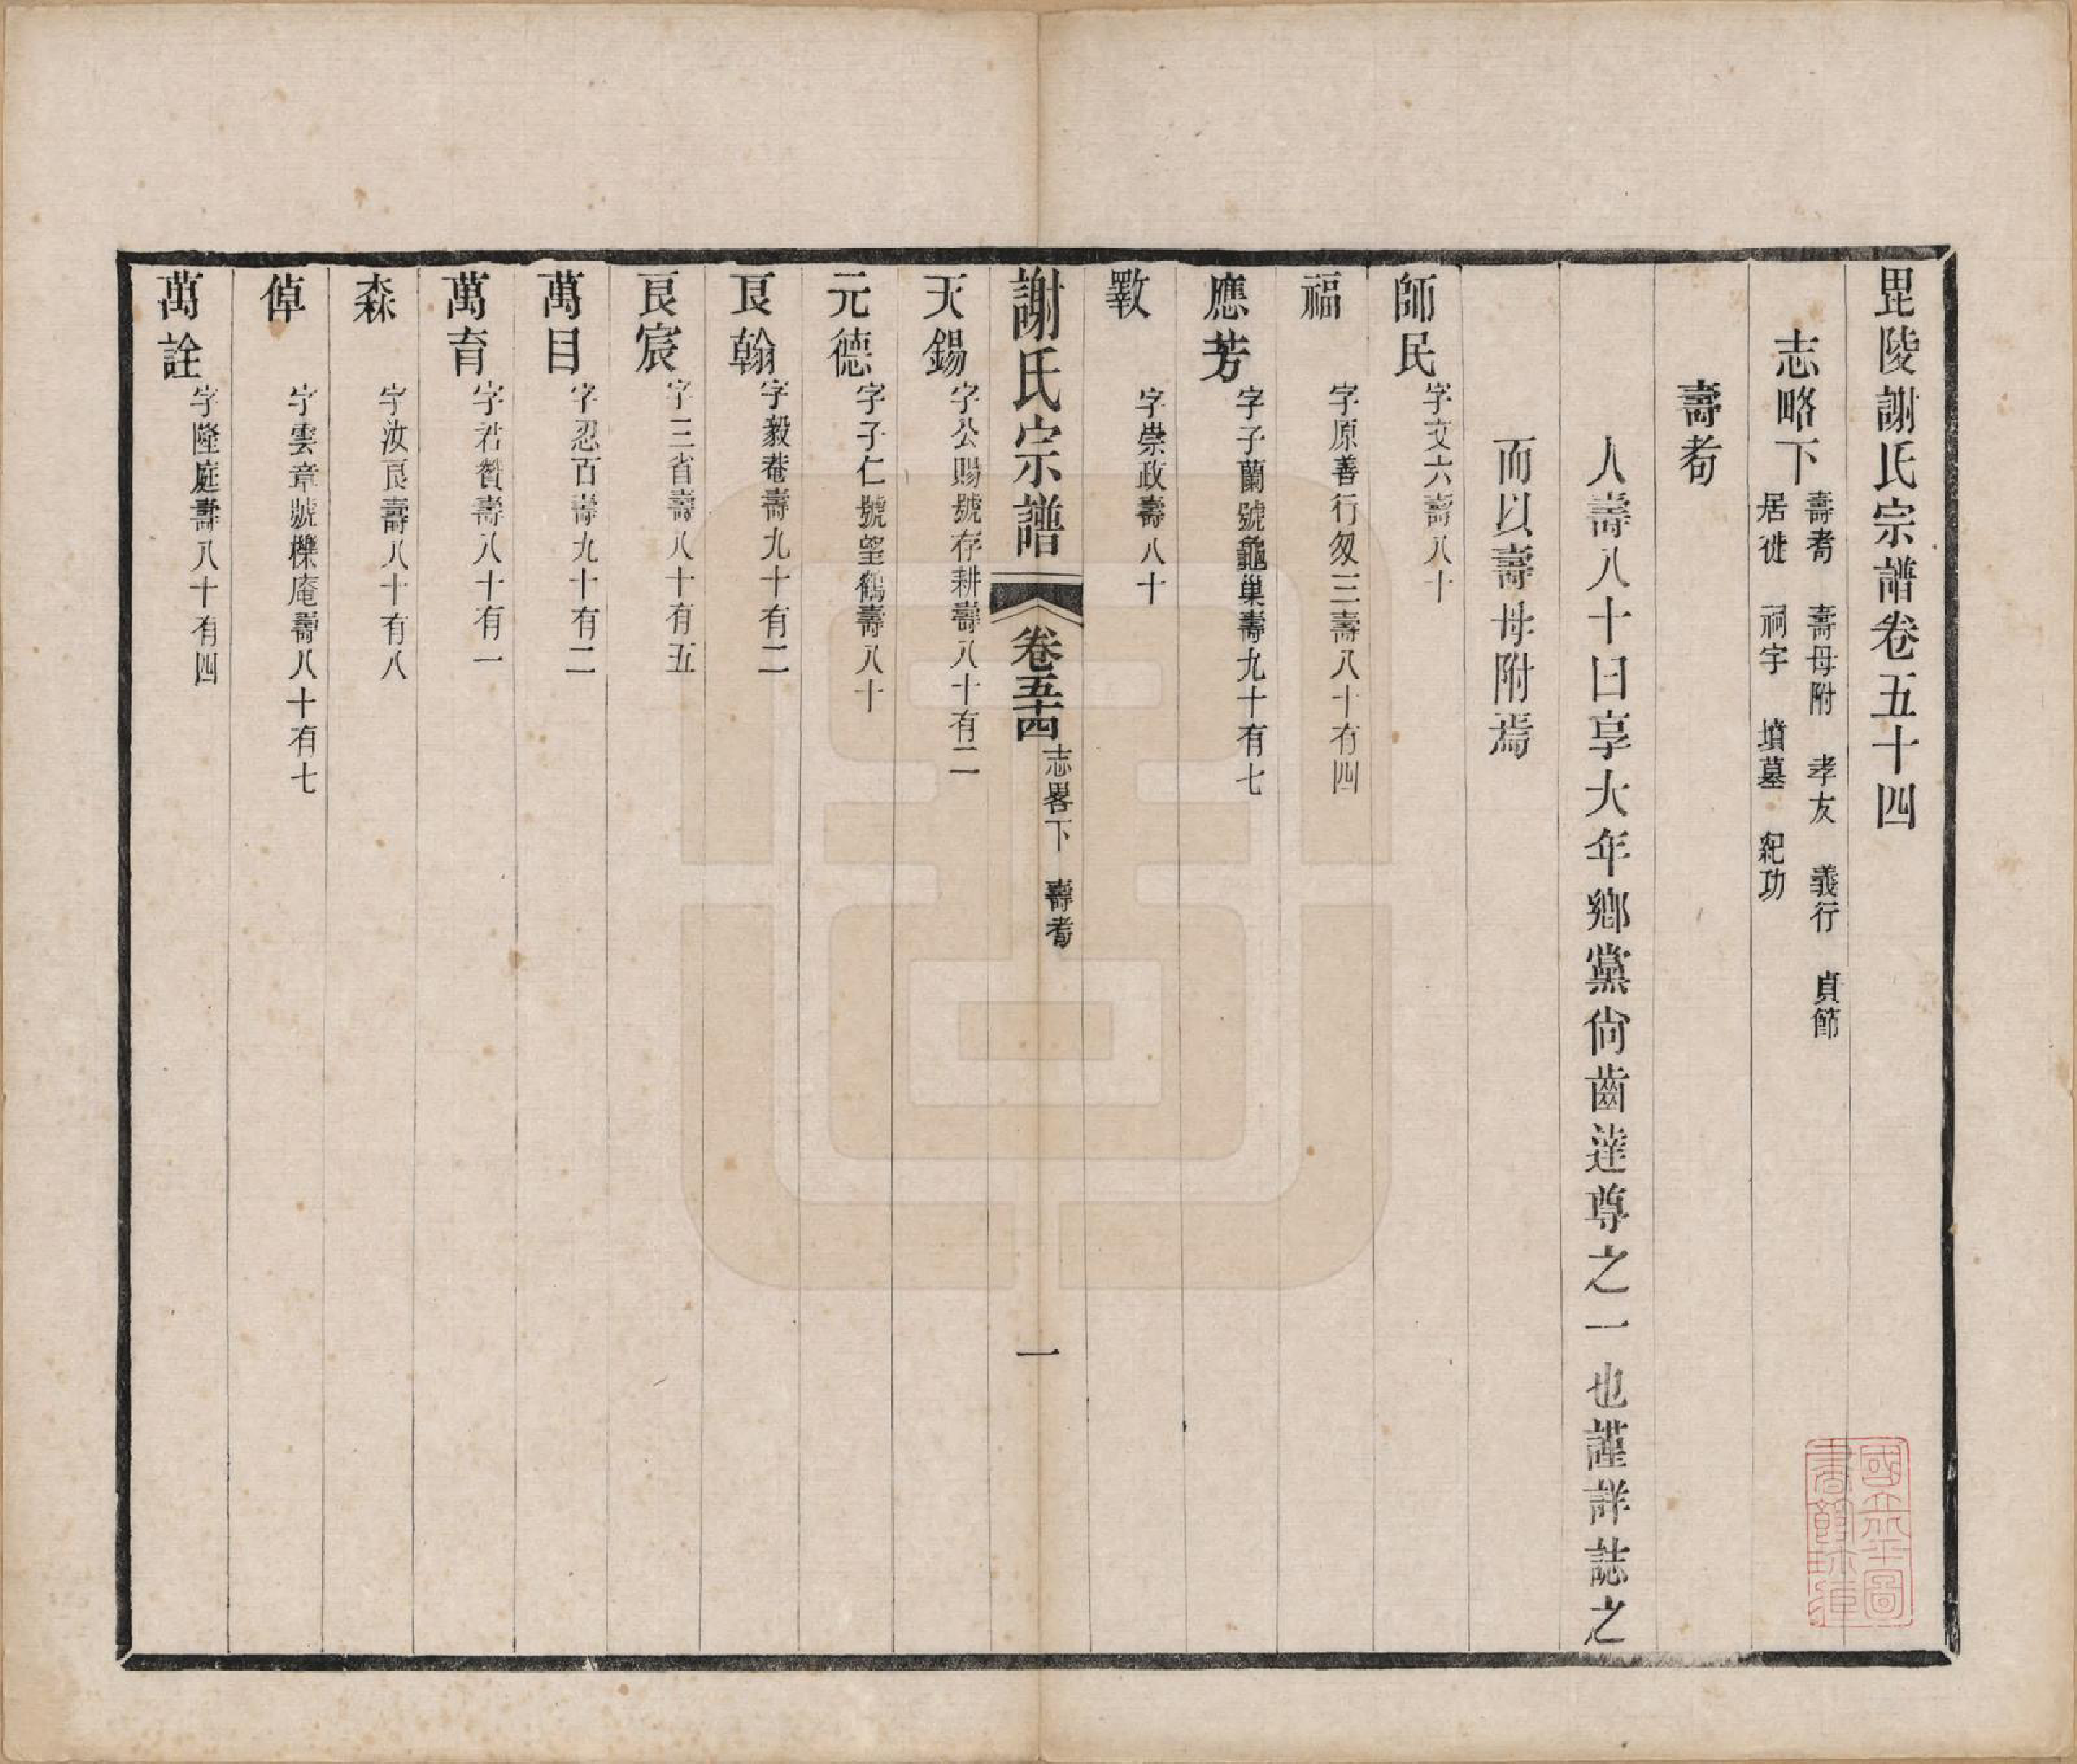 毘陵謝氏宗譜卷五十四
志略下
壽耇 壽母附 孝友 義行 貞節
居徙 祠宇 墳墓 紀功
壽耇
人壽八十曰享大年鄉黨尙齒達尊之一也謹詳誌之
而以壽母附焉
師民 字文六壽八十
福 字原善行叙三壽八十有四
應芳 字子蘭號龜巢壽九十有七
斁 字崇政壽八十
謝氏宗譜 卷五十四 志畧下 壽耇 一
天錫 字公賜號存耕壽八十有二
元德 字子仁號望鶴壽八十
良翰 字毅菴壽九十有二
良宸 字三省壽八十有五
萬目 字忍百壽九十有二
萬育 字君贊壽八十有一
森 字汝良壽八十有八
倬 字雲章號櫟庵壽八十有七
萬詮 字隆庭壽八十有四